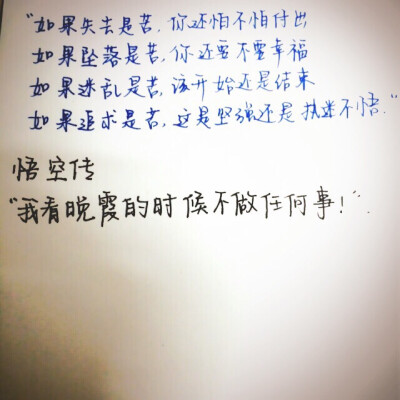 “如果失去是苦，你还怕不怕付出
如果坠落是苦，你还要不要幸福
如果迷乱是苦，该开始还是结束
如果追求是苦，这是坚强还是执迷不悟.”
悟空传
“我看晚霞的时候不做任何事！”.